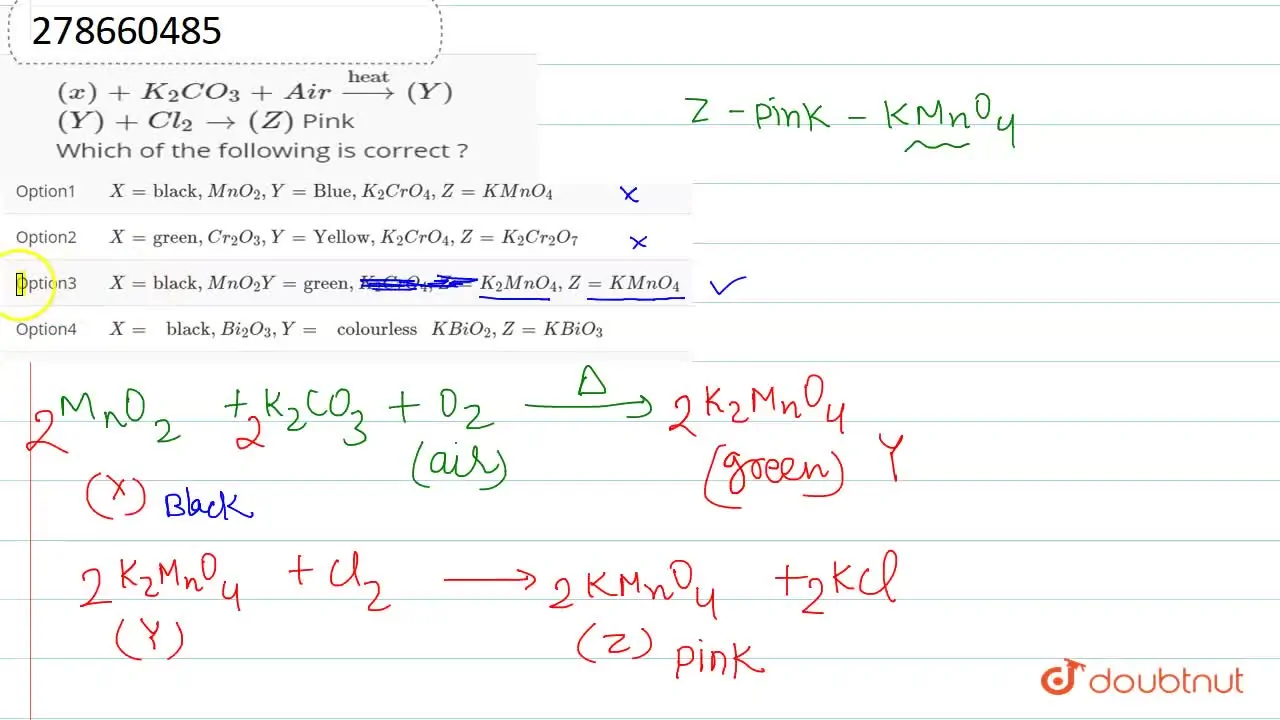 278660485
(x) + K₂CO₃ + Air —heat→ (Y)
(Y) + Cl₂ → (Z) Pink
Which of the following is correct ?
Z - Pink - KMnO₄
Option1 X = black, MnO₂, Y = Blue, K₂CrO₄, Z = KMnO₄ ×
Option2 X = green, Cr₂O₃, Y = Yellow, K₂CrO₄, Z = K₂Cr₂O₇ ×
Option3 X = black, MnO₂Y = green, K₂CrO₄, Z = K₂MnO₄, Z = KMnO₄ ✓
Option4 X = black, Bi₂O₃, Y = colourless KBiO₂, Z = KBiO₃
2MnO₂ + 2K₂CO₃ + O₂ —Δ→ 2K₂MnO₄
(air) (green) Y
(X) Black
2K₂MnO₄ + Cl₂ → 2KMnO₄ + 2KCl
(Y) (Z) Pink
doubtnut